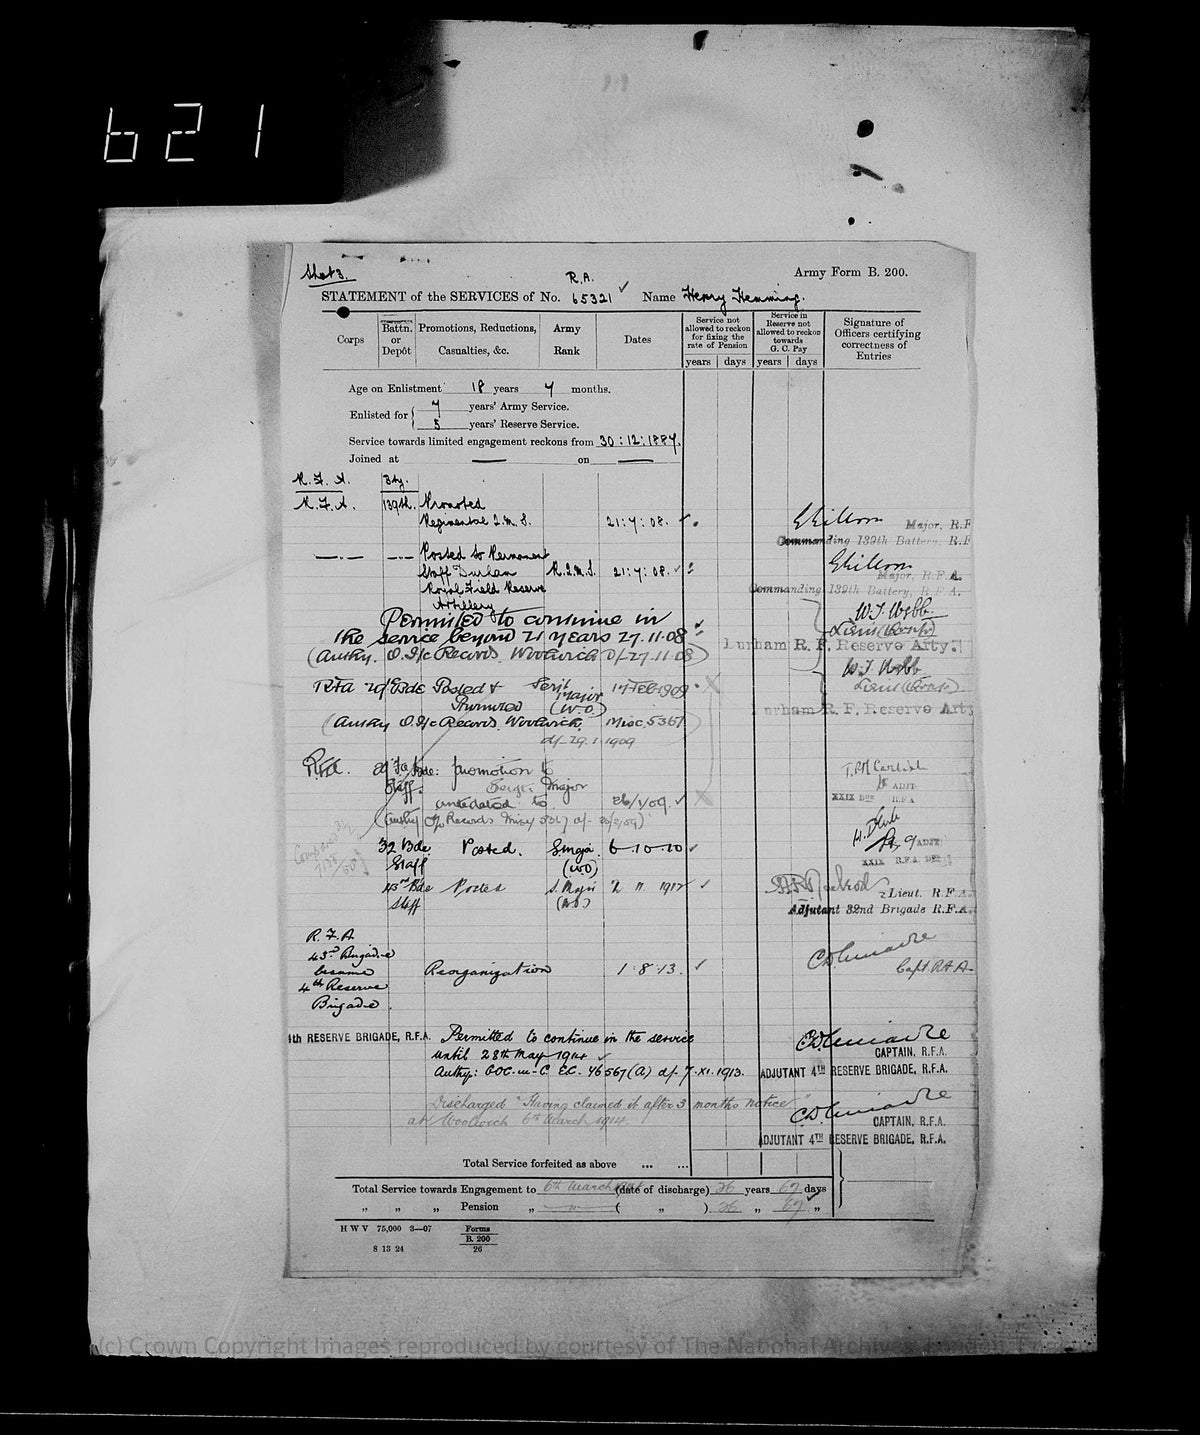 621
Sheet 3.
Army Form B. 200.
R.A.
STATEMENT of the SERVICES of No. 65321 Name Henry Hemming.
Corps
Battn. or Depôt
Promotions, Reductions, Casualties, &c.
Army Rank
Dates
Service not allowed to reckon for fixing the rate of Pension
years days
Service in Reserve not allowed to reckon towards G. C. Pay
years days
Signature of Officers certifying correctness of Entries
Age on Enlistment 18 years 7 months.
Enlisted for
7 years' Army Service.
5 years' Reserve Service.
Service towards limited engagement reckons from 30:12:1887.
Joined at — on —
R. F. A. Bty.
R. F. A. 139th. Promoted
Regimental Q. M. S. 21:7:08.
Major, R.F
Commanding 139th Battery, R.F
Posted to Permanent
Staff Durham R.Q.M.S. 21:7:08.
Major, R.F.A.
Royal Field Reserve
Commanding 139th Battery, R.F.A.
Artillery
Permitted to continue in
W.J. Webb
the service beyond 21 years 27.11.08
(Authy. O. I/c Records Woolwich d/-27.11.08)
Durham R. F. Reserve Arty.
W.J. Webb
RFA 29 Bde Posted & Serjt Major 1 Feb 1909
Promoted (W.O.)
(Authy O.I/c Records Woolwich. Misc. 5367
Durham R. F. Reserve Arty
d/-29.1.1909
R.F.A. 29 F.A. Bde: promotion to
Staff. Sergt. Major
ADJT
antedated to 26/1/09.
XXIX BDE R F A
(Authy O/c Records Misc/5367 d/-
32 Bde Posted. S. Major 6-10-10
ADJT
Staff (W.O)
XXIX R.F.A. BDE
43rd Bde Posted S. Major 2 11 1912
Lieut. R.F.A.
Staff (W.O.)
Adjutant 32nd Brigade R.F.A.
R. F. A
43rd Brigade
became Reorganization 1:8:13.
Capt. R.F.A.
4th Reserve
Brigade
4th RESERVE BRIGADE, R.F.A. Permitted to continue in the service
until 28th May 1914
CAPTAIN, R.F.A.
Authy: GOC-in-C E.C. 46567(A) d/- 7.XI.1913.
ADJUTANT 4TH RESERVE BRIGADE, R.F.A.
Discharged "Having claimed it after 3 months notice"
at Woolwich 6th March 1914.
CAPTAIN, R.F.A.
ADJUTANT 4TH RESERVE BRIGADE, R.F.A.
Total Service forfeited as above ... ...
Total Service towards Engagement to 6th March 1914 (date of discharge) 26 years 67 days
" " " Pension " " ( " ) 26 " 67 "
H W V 75,000 3—07
Forms
B. 200
26
8 13 24
(c) Crown Copyright Images reproduced by courtesy of The National Archives, London,